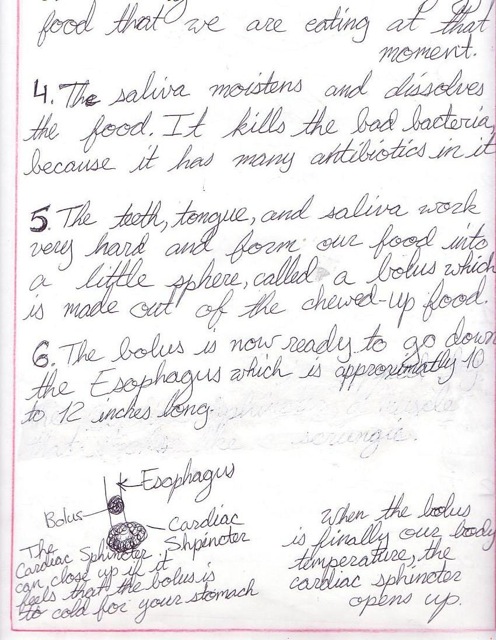 food that we are eating at that
moment.
4. The saliva moistens and dissolves
the food. It kills the bad bacteria
because it has many antibiotics in it
5. The teeth, tongue, and saliva work
very hard and form our food into
a little sphere, called a bolus which
is made out of the chewed-up food.
6. The bolus is now ready to go down
the Esophagus which is approximatly 10
to 12 inches long.
Esophagus
Bolus
Cardiac
Shpincter
The
Cardiac Sphincter
can close up if it
feels that the bolus is
to cold for your stomach
When the bolus
is finally our body
temperature, the
cardiac sphincter
opens up.